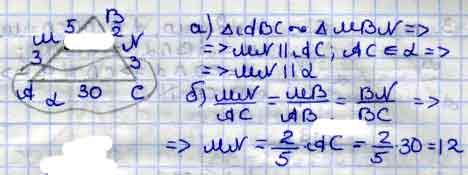 B
5 2
M N
3 3
A α 30 C
а) ΔABC ~ ΔMBN =>
=> MN || AC; AC ∈ α =>
=> MN || α
б) MN/AC = MB/AB = BN/BC =>
=> MN = 2/5 · AC = 2/5 · 30 = 12